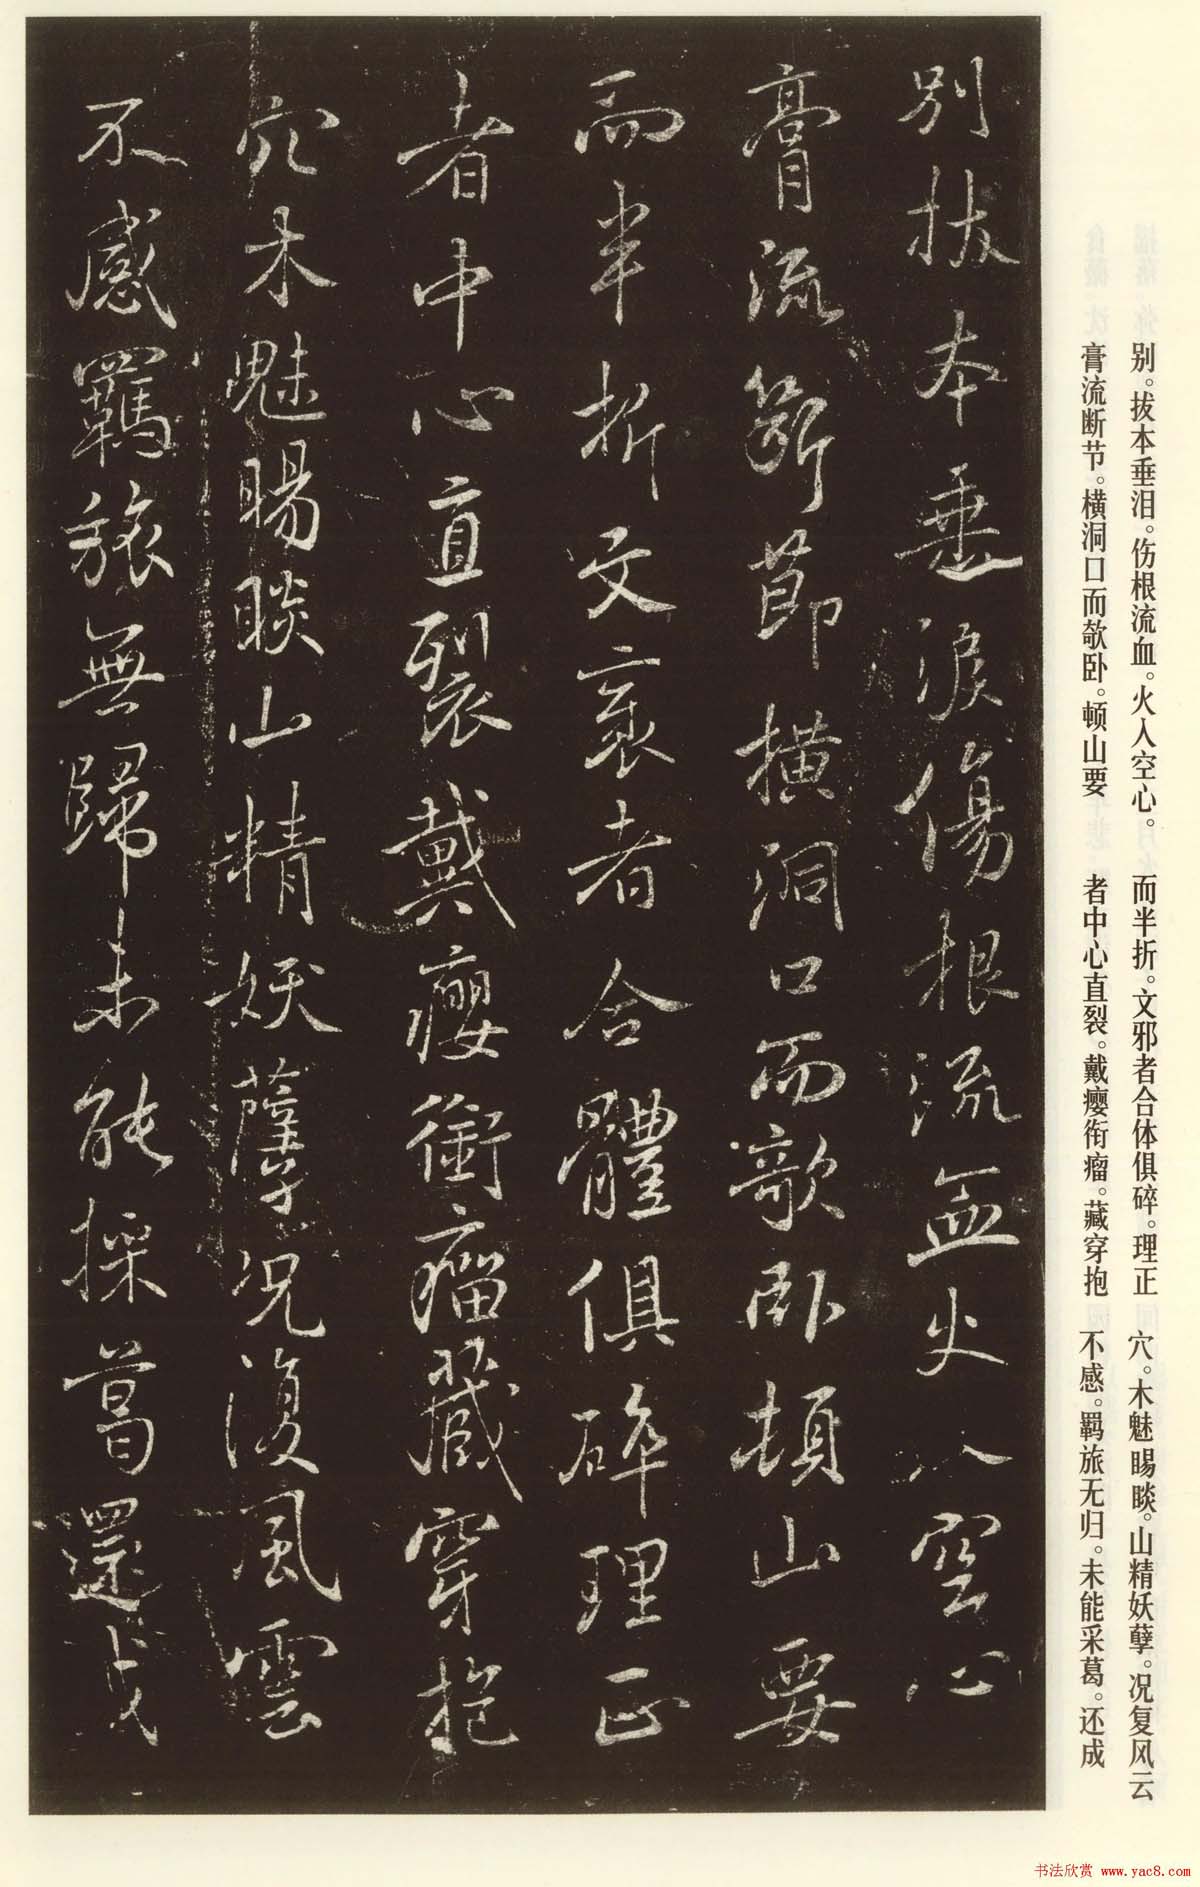 别拔本垂淚傷根流血火入空心
膏流斷節橫洞口而欹卧頓山要
而半折文衺者合體俱碎理正
者中心直裂戴癭銜瘤藏穿抱
穴木魅睗睒山精妖孽况復風雲
不感羈旅無歸未能採葛還成
别。拔本垂泪。伤根流血。火入空心。
膏流断节。横洞口而欹卧。顿山要
而半折。文邪者合体俱碎。理正
者中心直裂。戴瘿衔瘤。藏穿抱
穴。木魅睗睒。山精妖孽。况复风云
不感。羁旅无归。未能采葛。还成
书法欣赏 www.yac8.com